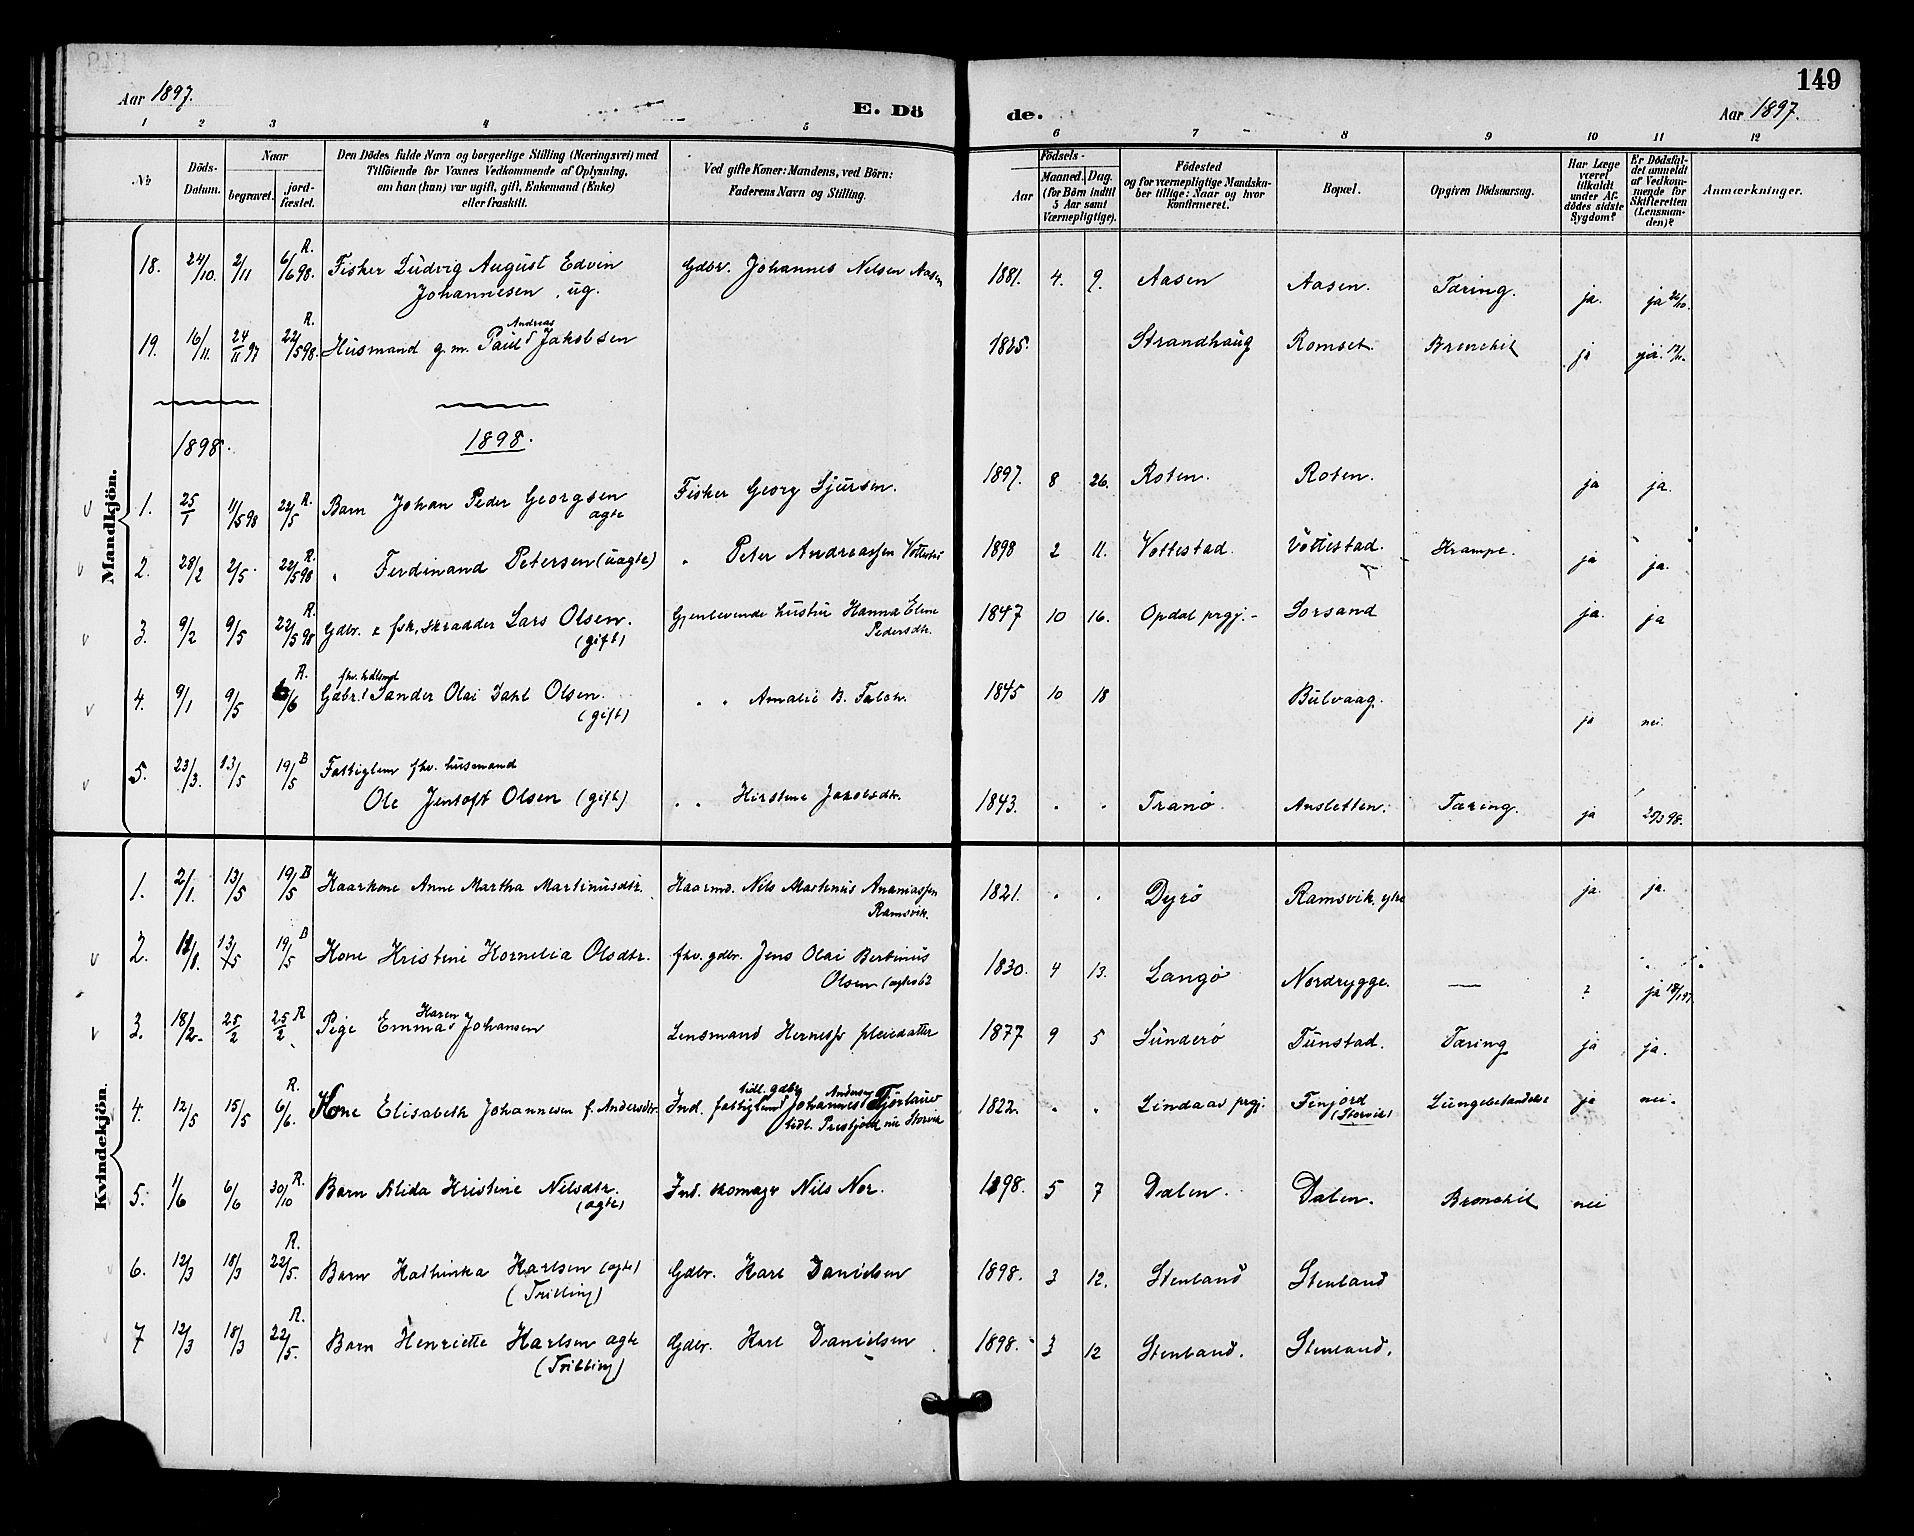 149
Aar 1897.
E. Dö
de.
Aar 1897.
1 2 3 4 5 6 7 8 9 10 11 12
No
Döds-Datum.
Naar
begravet.
jord-fæstet.
Den Dödes fulde Navn og borgerlige Stilling (Næringsvei) med
Tilföiende for Voxnes Vedkommende af Oplysning,
om han (hun) var ugift, gift, Enkemand (Enke)
eller fraskilt.
Ved gifte Koner: Mandens, ved Börn:
Faderens Navn og Stilling.
Födsels-
Aar
Maaned. Dag.
(for Börn indtil
5 Aar samt
Værnepligtige).
Födested
og for værnepligtige Mandska-
ber tillige: Naar og hvor
konfirmeret.
Bopæl.
Opgiven Dödsaarsag.
Har Læge
været
tilkaldt
under Af-
dödes sidste
Sygdom?
Er Dödsfal-
det anmeldt
af Vedkom-
mende for
Skifteretten
(Lensman-
den)?
Anmærkninger.
Mandkjön.
18. 24/10. 2/11 6/6 98. R. Fisker Ludvig August Edvin Gdbr. Johannes Nilsen Aasen 1881. 4. 9. Aasen Aasen. Tæring. ja. ja
Johannesen, ug.
19. 16/11. 24/11 97 22/5 98. R. Husmand g.m. Paul Andreas Jakobsen 1825. Strandhaug Romset. Bronchit ja ja.
1898. 1898.
1. 25/1 11/5 98 22/5 R. Barn Johan Peder Georgsen Fisker Georg Sjursen. 1897. 8 26. Roten. Roten. ja ja.
ægte
2. 28/2 2/5 22/5 98 R. " Ferdinand Petersen (uægte) " Peter Andreassen Vottestad 1898 2 11. Vottestad. Vottestad. Krampe. ja ja.
3. 9/2 9/5 22/5 98 R. Gdbr. & fsk, skrædder Lars Olsen. Gjenlevende hustru Hanna Eline 1847 10 16. Opdal prgj. Sorsand ja. ja
(gift) Pedersdtr.
4. 9/1 9/5 6/6 R. Gdbr. Sander Olai Dahl Olsen. " " Amalie B. Falch. 1845 10 18 Bulvaag. ja nei.
(gift)
5. 23/3. 13/5 19/5 B Fattiglem fhv. husmand
Ole Jentoft Olsen (gift) " " Kirstine Jakobsdtr. 1843. " " Tranö. Ansletten. Tæring. ja
Kvindekjön.
1. 2/1. 13/5 19/5 B Kaarkone Anne Martha Martinusdtr. Kaarmd. Nils Martinus Ananiassen 1821. " " Dyrö Ramsvik, ytre ja. ja.
Ramsvik.
2. 13/5 19/5 B Kone Kristine Kornelia Olsdtr. fhv. gdbr. Jens Olai Bertinus 1830. 4 13. Langö Nordrygge. — ? ja
Olsen
3. 18/2. 25/2 25/2 R Pige Emma Karen Johansen Lensmand Herness pleiedatter 1877 9 5 Sünderö Tünstad. Tæring ja ja.
4. 12/5 15/5 6/6. R. Kone Elisabeth Johannesen f. Andersdtr. Ind. fattiglem Johannes 1822. " " Lindaas prgj. Finjord Lungebetændelse ja nei.
(Storvik)
5. 1/6 6/6 30/10 R. Barn Alida Kristine Nilsdtr. Ind. skomagr Nils Nor. 1898. 5 7 Dalen. Dalen. Bronchit nei
(ægte)
6. 12/3 18/3 22/5. R. Barn Kathinka Karlsen (ægte) Gdbr. Karl Danielsen 1898. 3 12. Stenland Stenland
(Trilling)
7 12/3 18/3 22/5. R. Barn Henriette Karlsen ægte Gdbr. Karl Danielsen 1898. 3 12 Stenland. Stenland.
(Trilling)